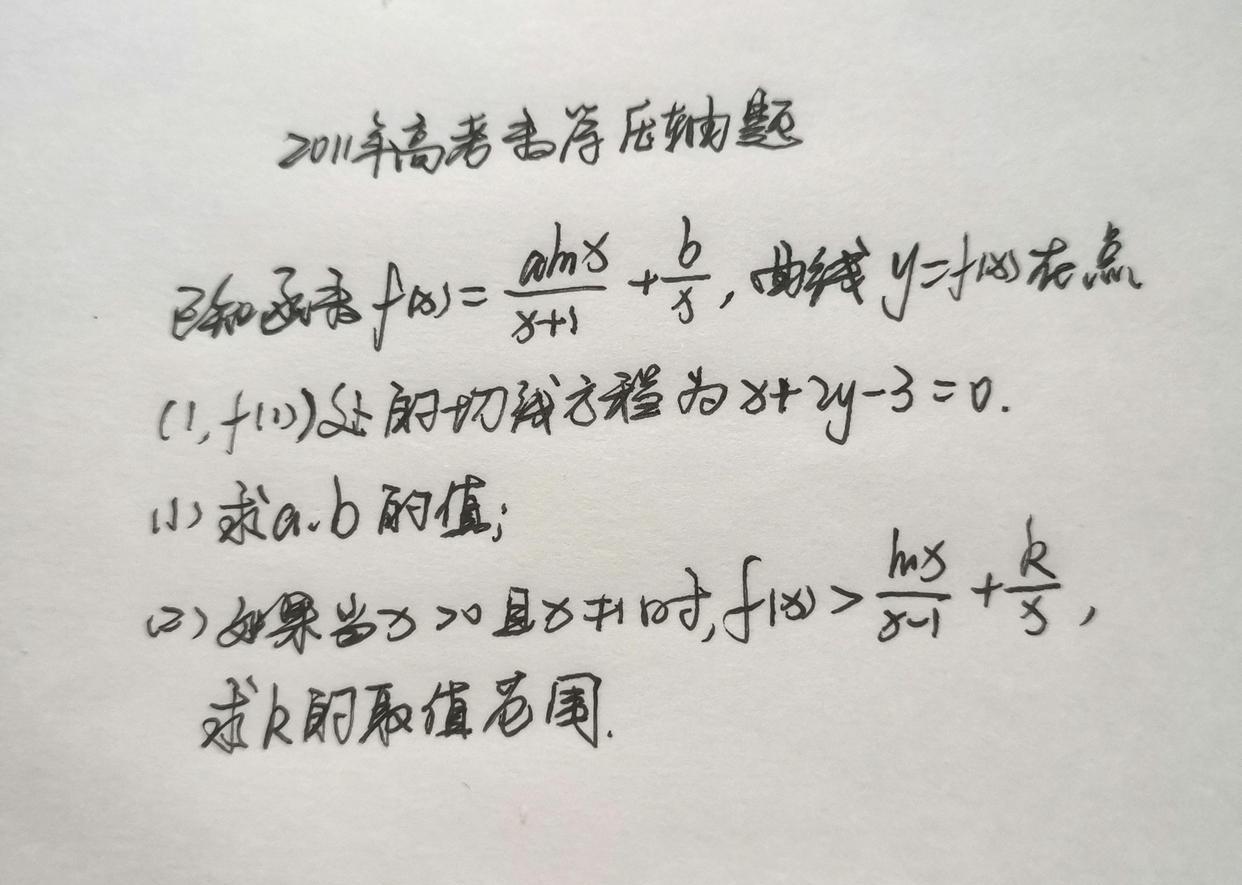 2011年高考数学压轴题
已知函数f(x)=alnx/(x+1)+b/x,曲线y=f(x)在点
(1,f(1))处的切线方程为x+2y-3=0.
(1)求a、b的值;
(2)如果当x>0且x≠1时,f(x)>lnx/(x-1)+k/x,
求k的取值范围.